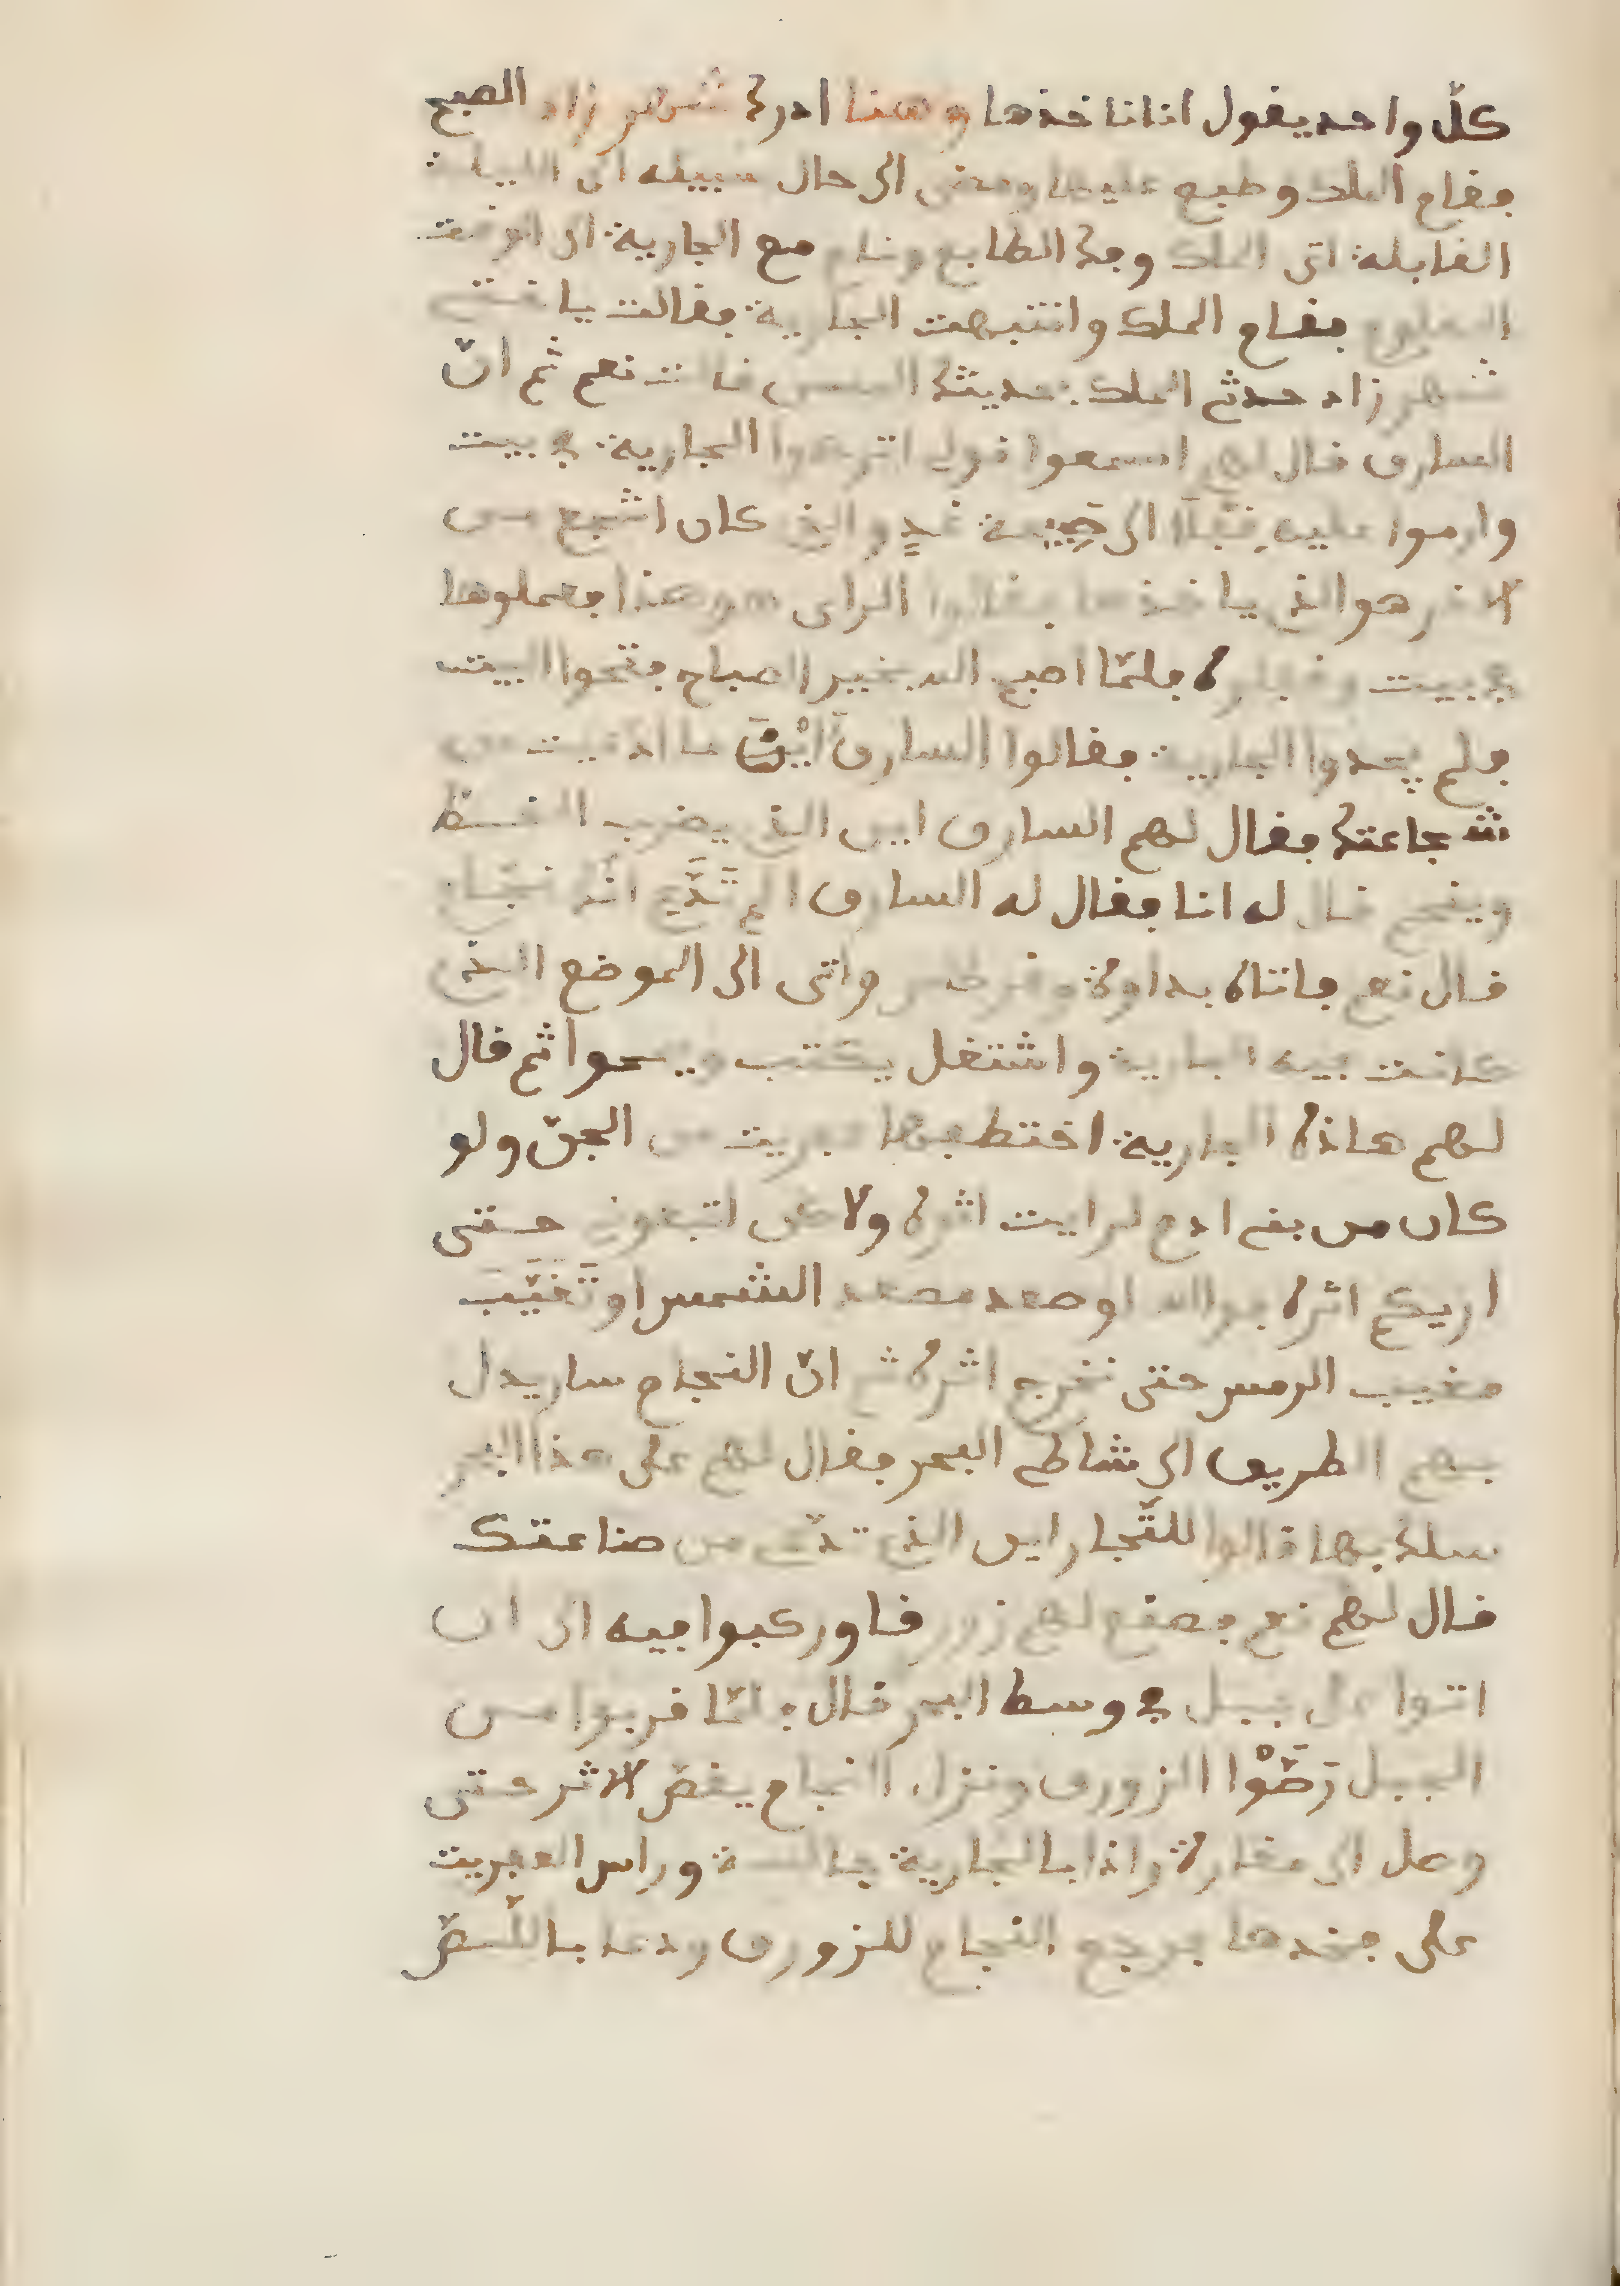 كلّ واحد يقول انا ناخذها وهنا ادرك شهرزاد الصبح
فقام الملك وطبع عليها ومضى الى حال سبيله الى الليلة
القابلة اتى الملك وفك الطابع ونام مع الجارية الى الوقت
المعلوم فقام الملك وانتبهت الجارية فقالت يا اختي
شهرزاد حدث الملك بحديثك الحسن قالت نعم ثم انّ
السارق قال لهم اسمعوا قولي اتركوا الجارية في بيت
وارموا عليه قبلا الى صبيحة غدٍ والذي كان اشجع من
الاخر هو الذي ياخذها فقالوا الراى هو هذا فعملوها
في بيت وقبلوه فلمّا اصبح الله بخير الصباح فتحوا البيت
فلم يجدوا الجارية فقالوا السارق ايْنَ ما ادعيت من
شجاعتك فقال لهم السارق اين الذي يضرب الخطّ
وينجم قال له انا فقال له السارق الم تَدَّعِ انك نجّام
قال نعم فاتاه بداوة وقرطس واتى الى الموضع الذي
كانت فيه الجارية واشتغل يكتب ويمحوا ثم قال
لهم هاذه الجارية اختطفها عفريت من الجنّ ولو
كان من بني ادم لرايت اثره ولاكن اتبعوني حتى
اريكم اثره فوالله لو صعد مصعد الشمس او تَغَيَّبَ
مغيب الرمس حتى نخرج اثره ثم انّ النجام سار يدل
بهم الطريق الى شاطئ البحر فقال لهم على هذا البحر
سلك بها قالوا للنّجار اين الذي تدّعي من صناعتك
قال لهم نعم فصنع لهم زورقا وركبوا فيه الى ان
اتوا على جبل في وسط البحر قال فلمّا قربوا من
الجبل رَصَّوْا الزورق ونزل النجام يقصّ الاثر حتى
وصل الى مغارة واذا بالجارية جالسة وراس العفريت
على فخدها فرجع النجام للزورق ودعا باللّصّ